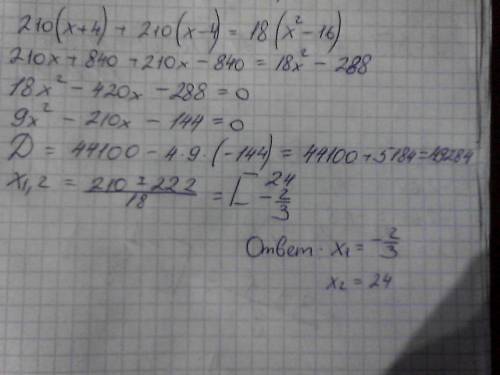 210(x+4) + 210(x-4) = 18(x²-16)
210x + 840 + 210x - 840 = 18x² - 288
18x² - 420x - 288 = 0
9x² - 210x - 144 = 0
D = 44100 - 4·9·(-144) = 44100 + 5184 = 49284
x₁,₂ = (210 ± 222)/18 = [24; -2/3
Ответ· x₁ = -2/3
x₂ = 24